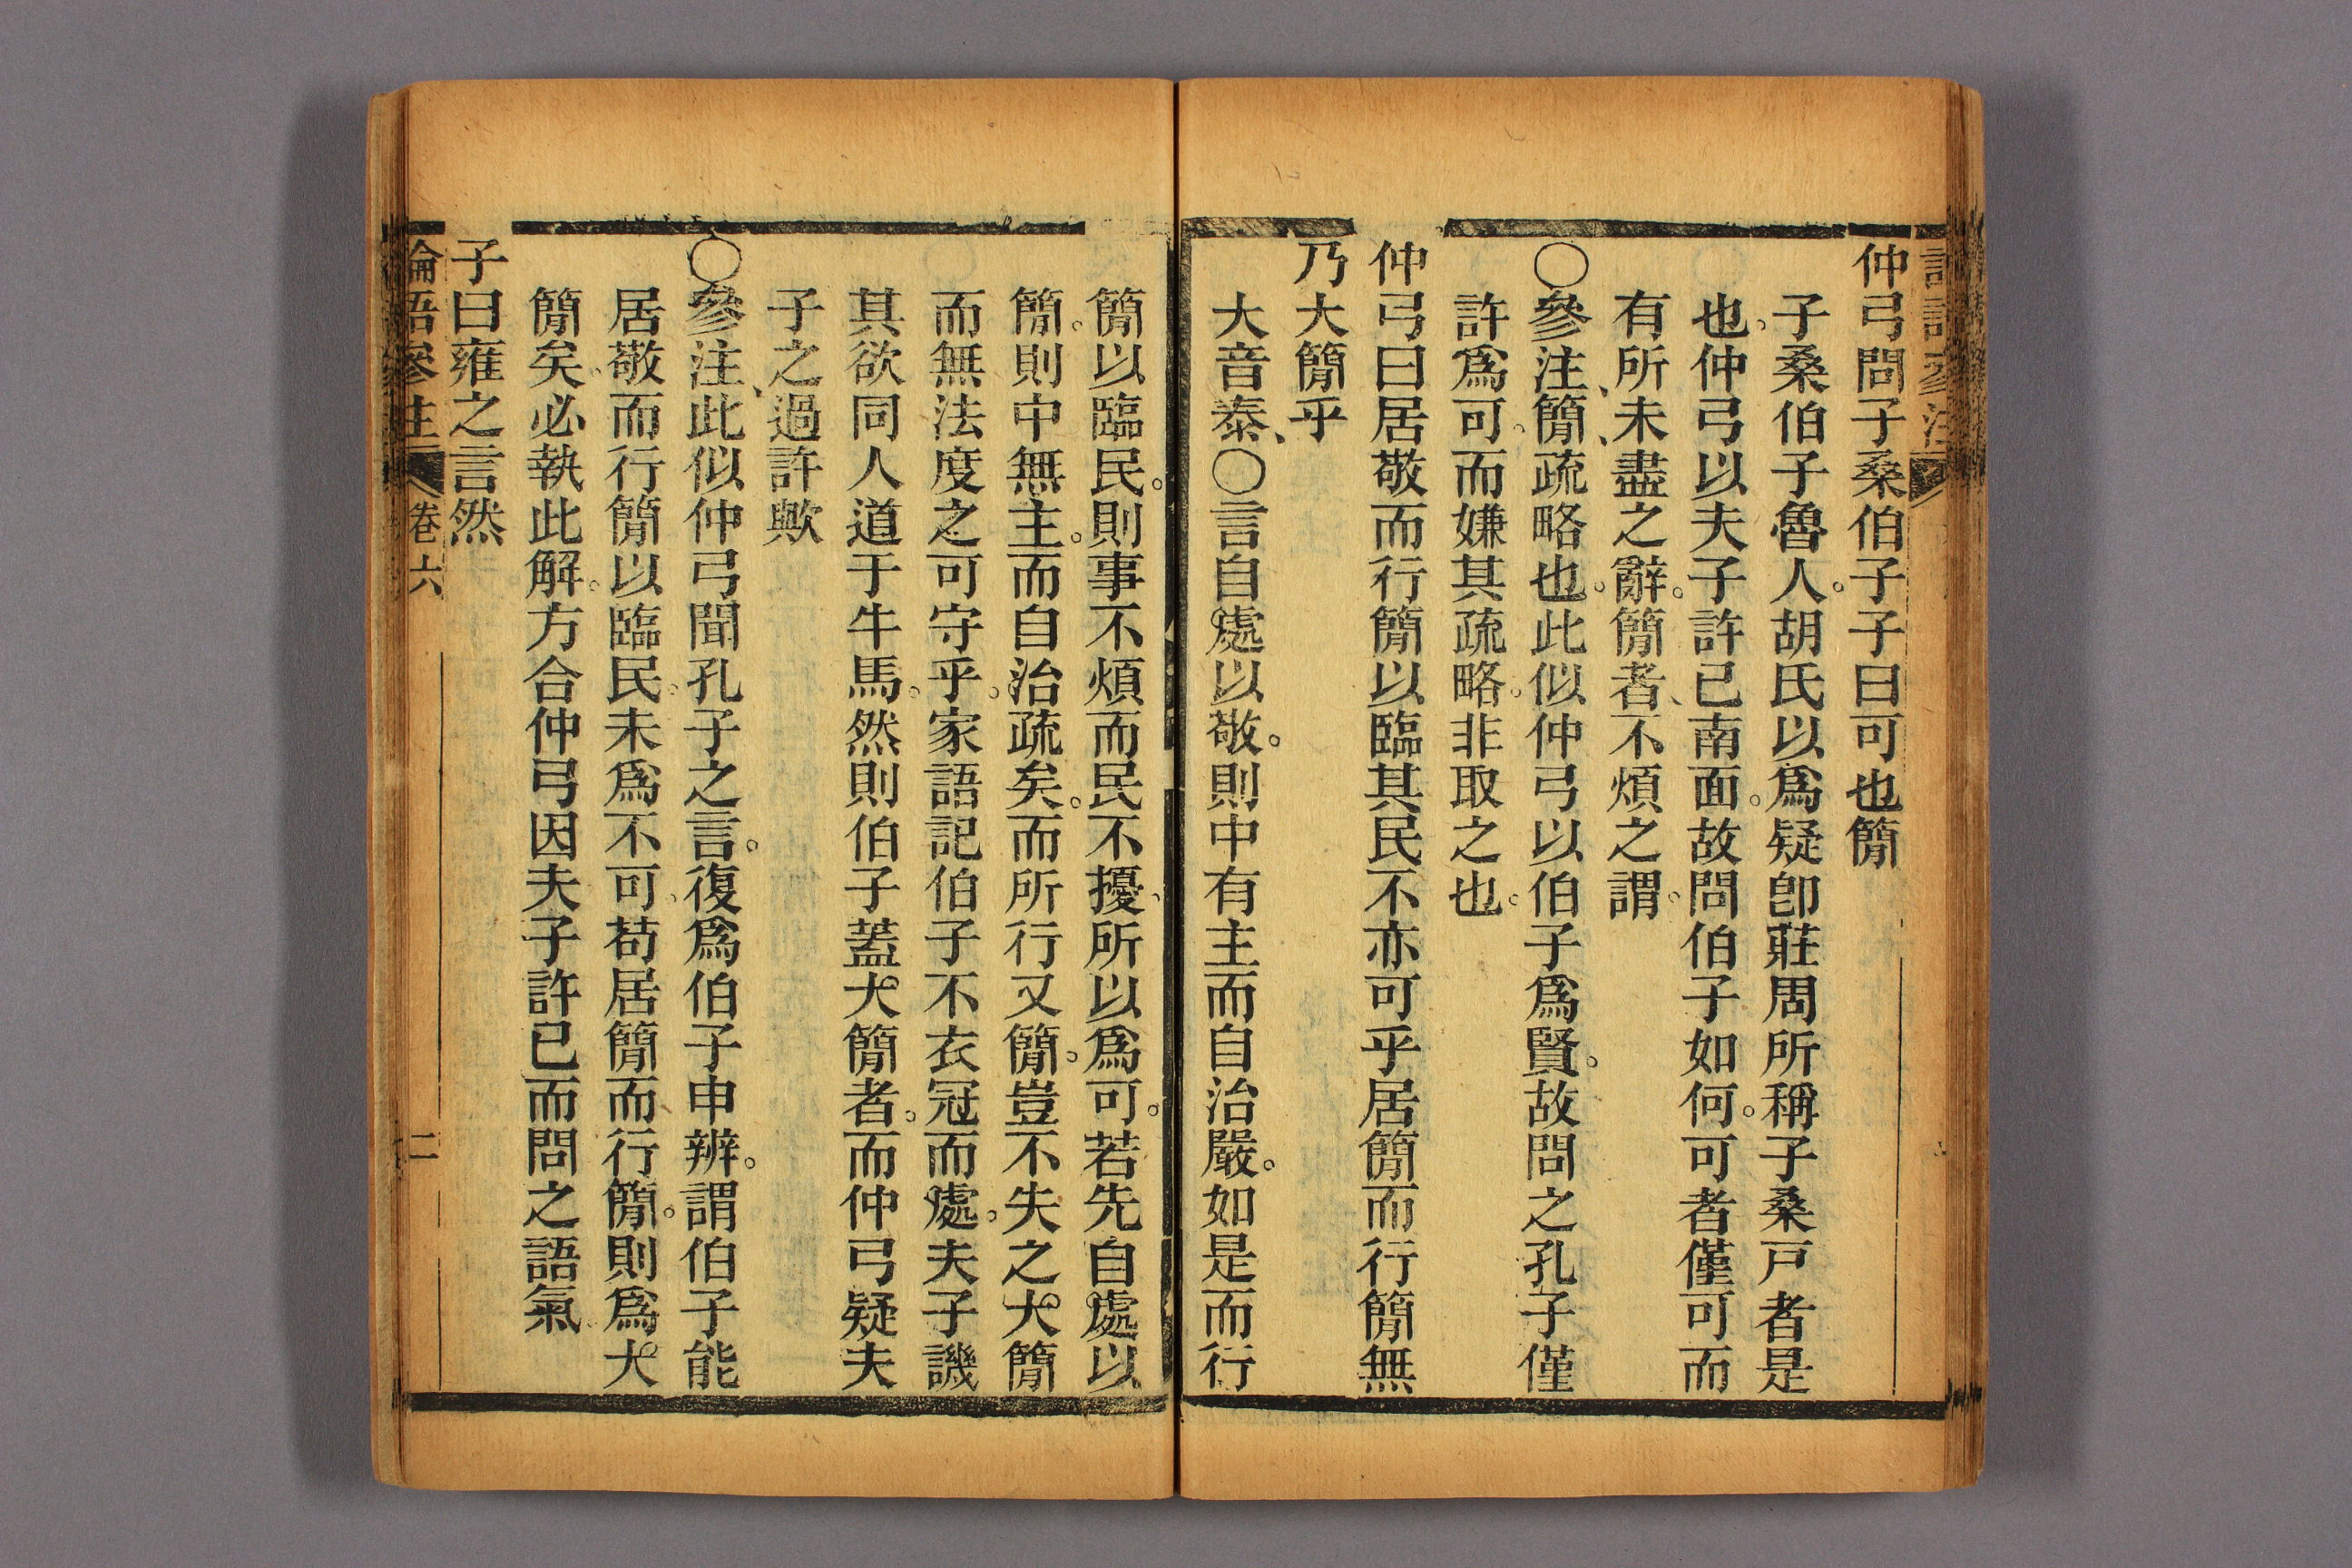 仲弓問子桑伯子子曰可也簡
子桑伯子魯人。胡氏以爲疑卽莊周所稱子桑戸者是
也。仲弓以夫子許己南面。故問伯子如何。可者僅可而
有所未盡之辭。簡者、不煩之謂。
〇參注、簡、疏略也。此似仲弓以伯子爲賢。故問之孔子僅
許爲可。而嫌其疏略。非取之也。
仲弓曰居敬而行簡以臨其民不亦可乎居簡而行簡無
乃大簡乎
大音泰、〇言自處以敬。則中有主而自治嚴。如是而行
簡以臨民。則事不煩而民不擾。所以爲可。若先自處以
簡。則中無主。而自治疏矣。而所行又簡。豈不失之大簡
而無法度之可守乎。家語記伯子不衣冠而處。夫子譏
其欲同人道于牛馬。然則伯子蓋大簡者。而仲弓疑夫
子之過許歟
〇參注、此似仲弓聞孔子之言。復爲伯子申辨。謂伯子能
居敬而行簡以臨民。未爲不可。苟居簡而行簡。則爲大
簡矣。必執此解。方合仲弓因夫子許已而問之語氣。
子曰雍之言然
論語參注 卷六 二